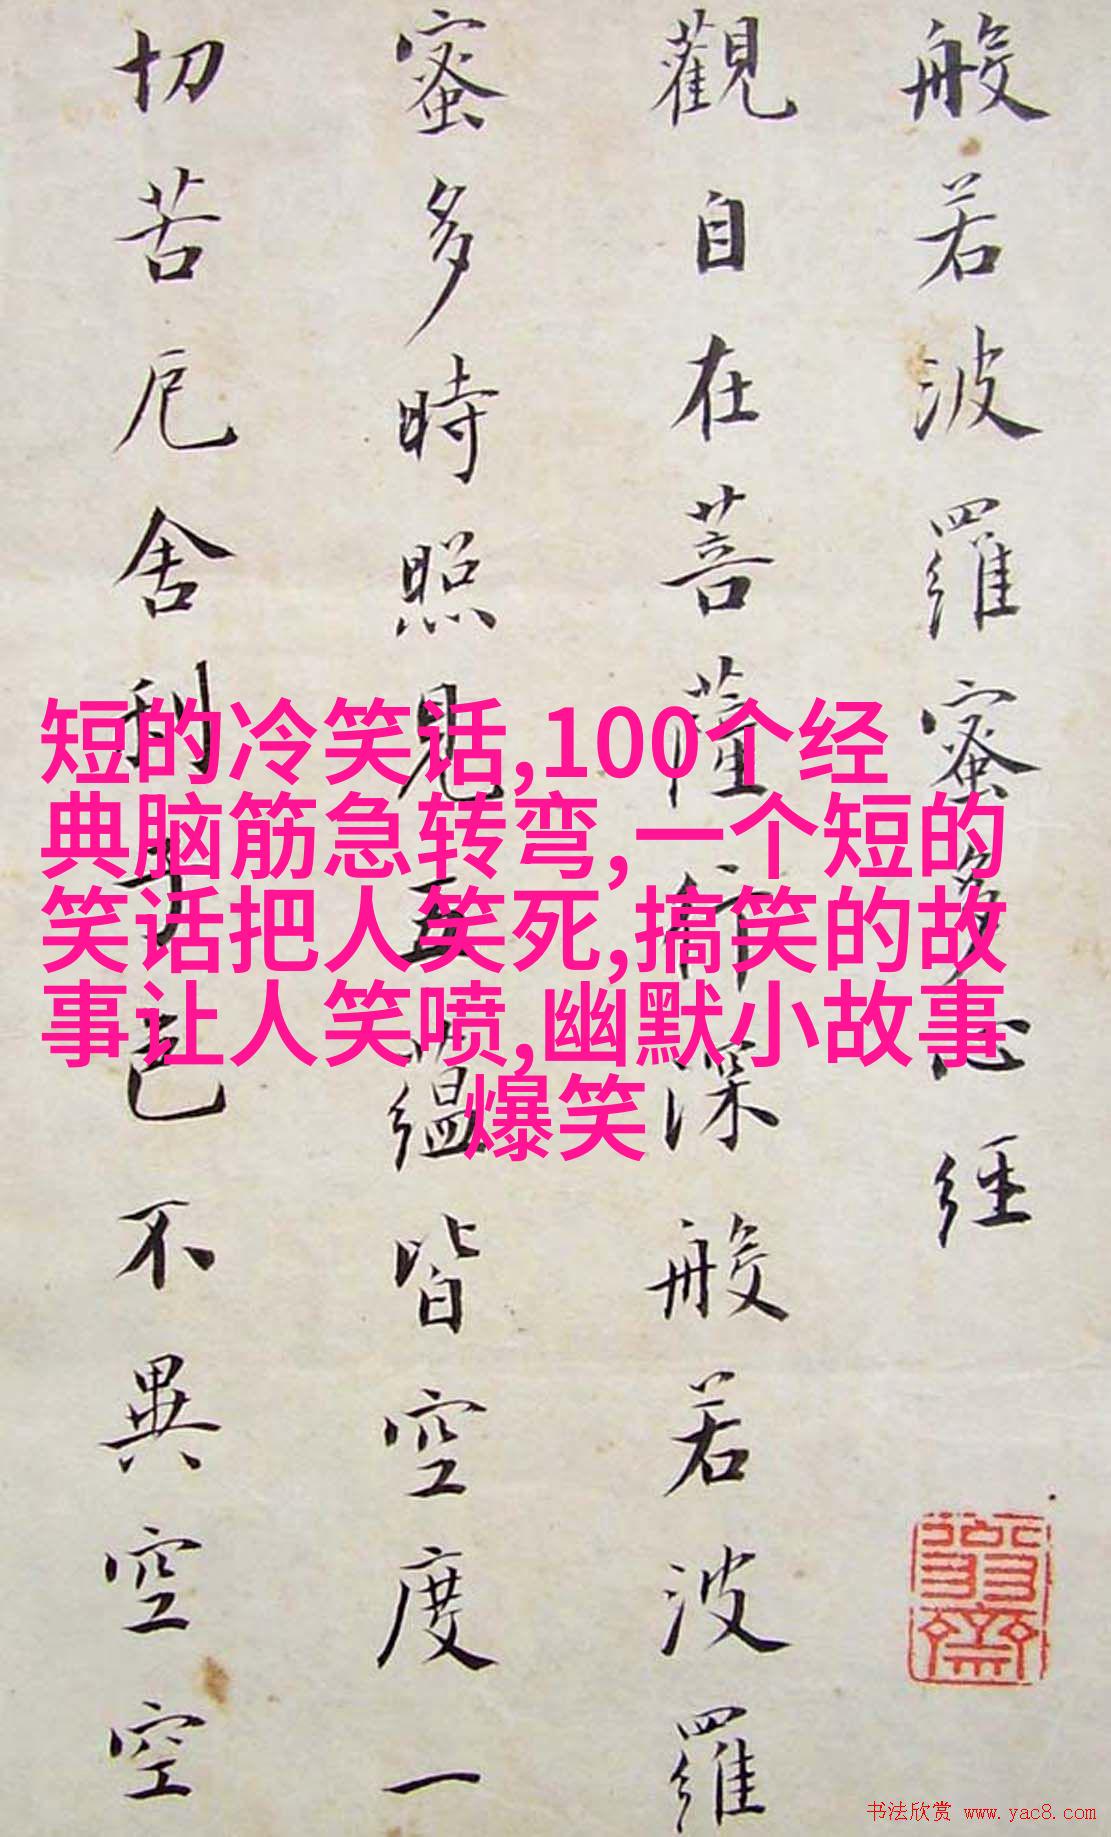 般若波羅蜜多心経
觀自在菩薩行深般若波羅
蜜多時照見五蘊皆空度一
切苦厄舍利子色不異空空
短的冷笑话,100个经
典脑筋急转弯,一个短的
笑话把人笑死,搞笑的故
事让人笑喷,幽默小故事
爆笑
书法欣赏 www.yac8.com